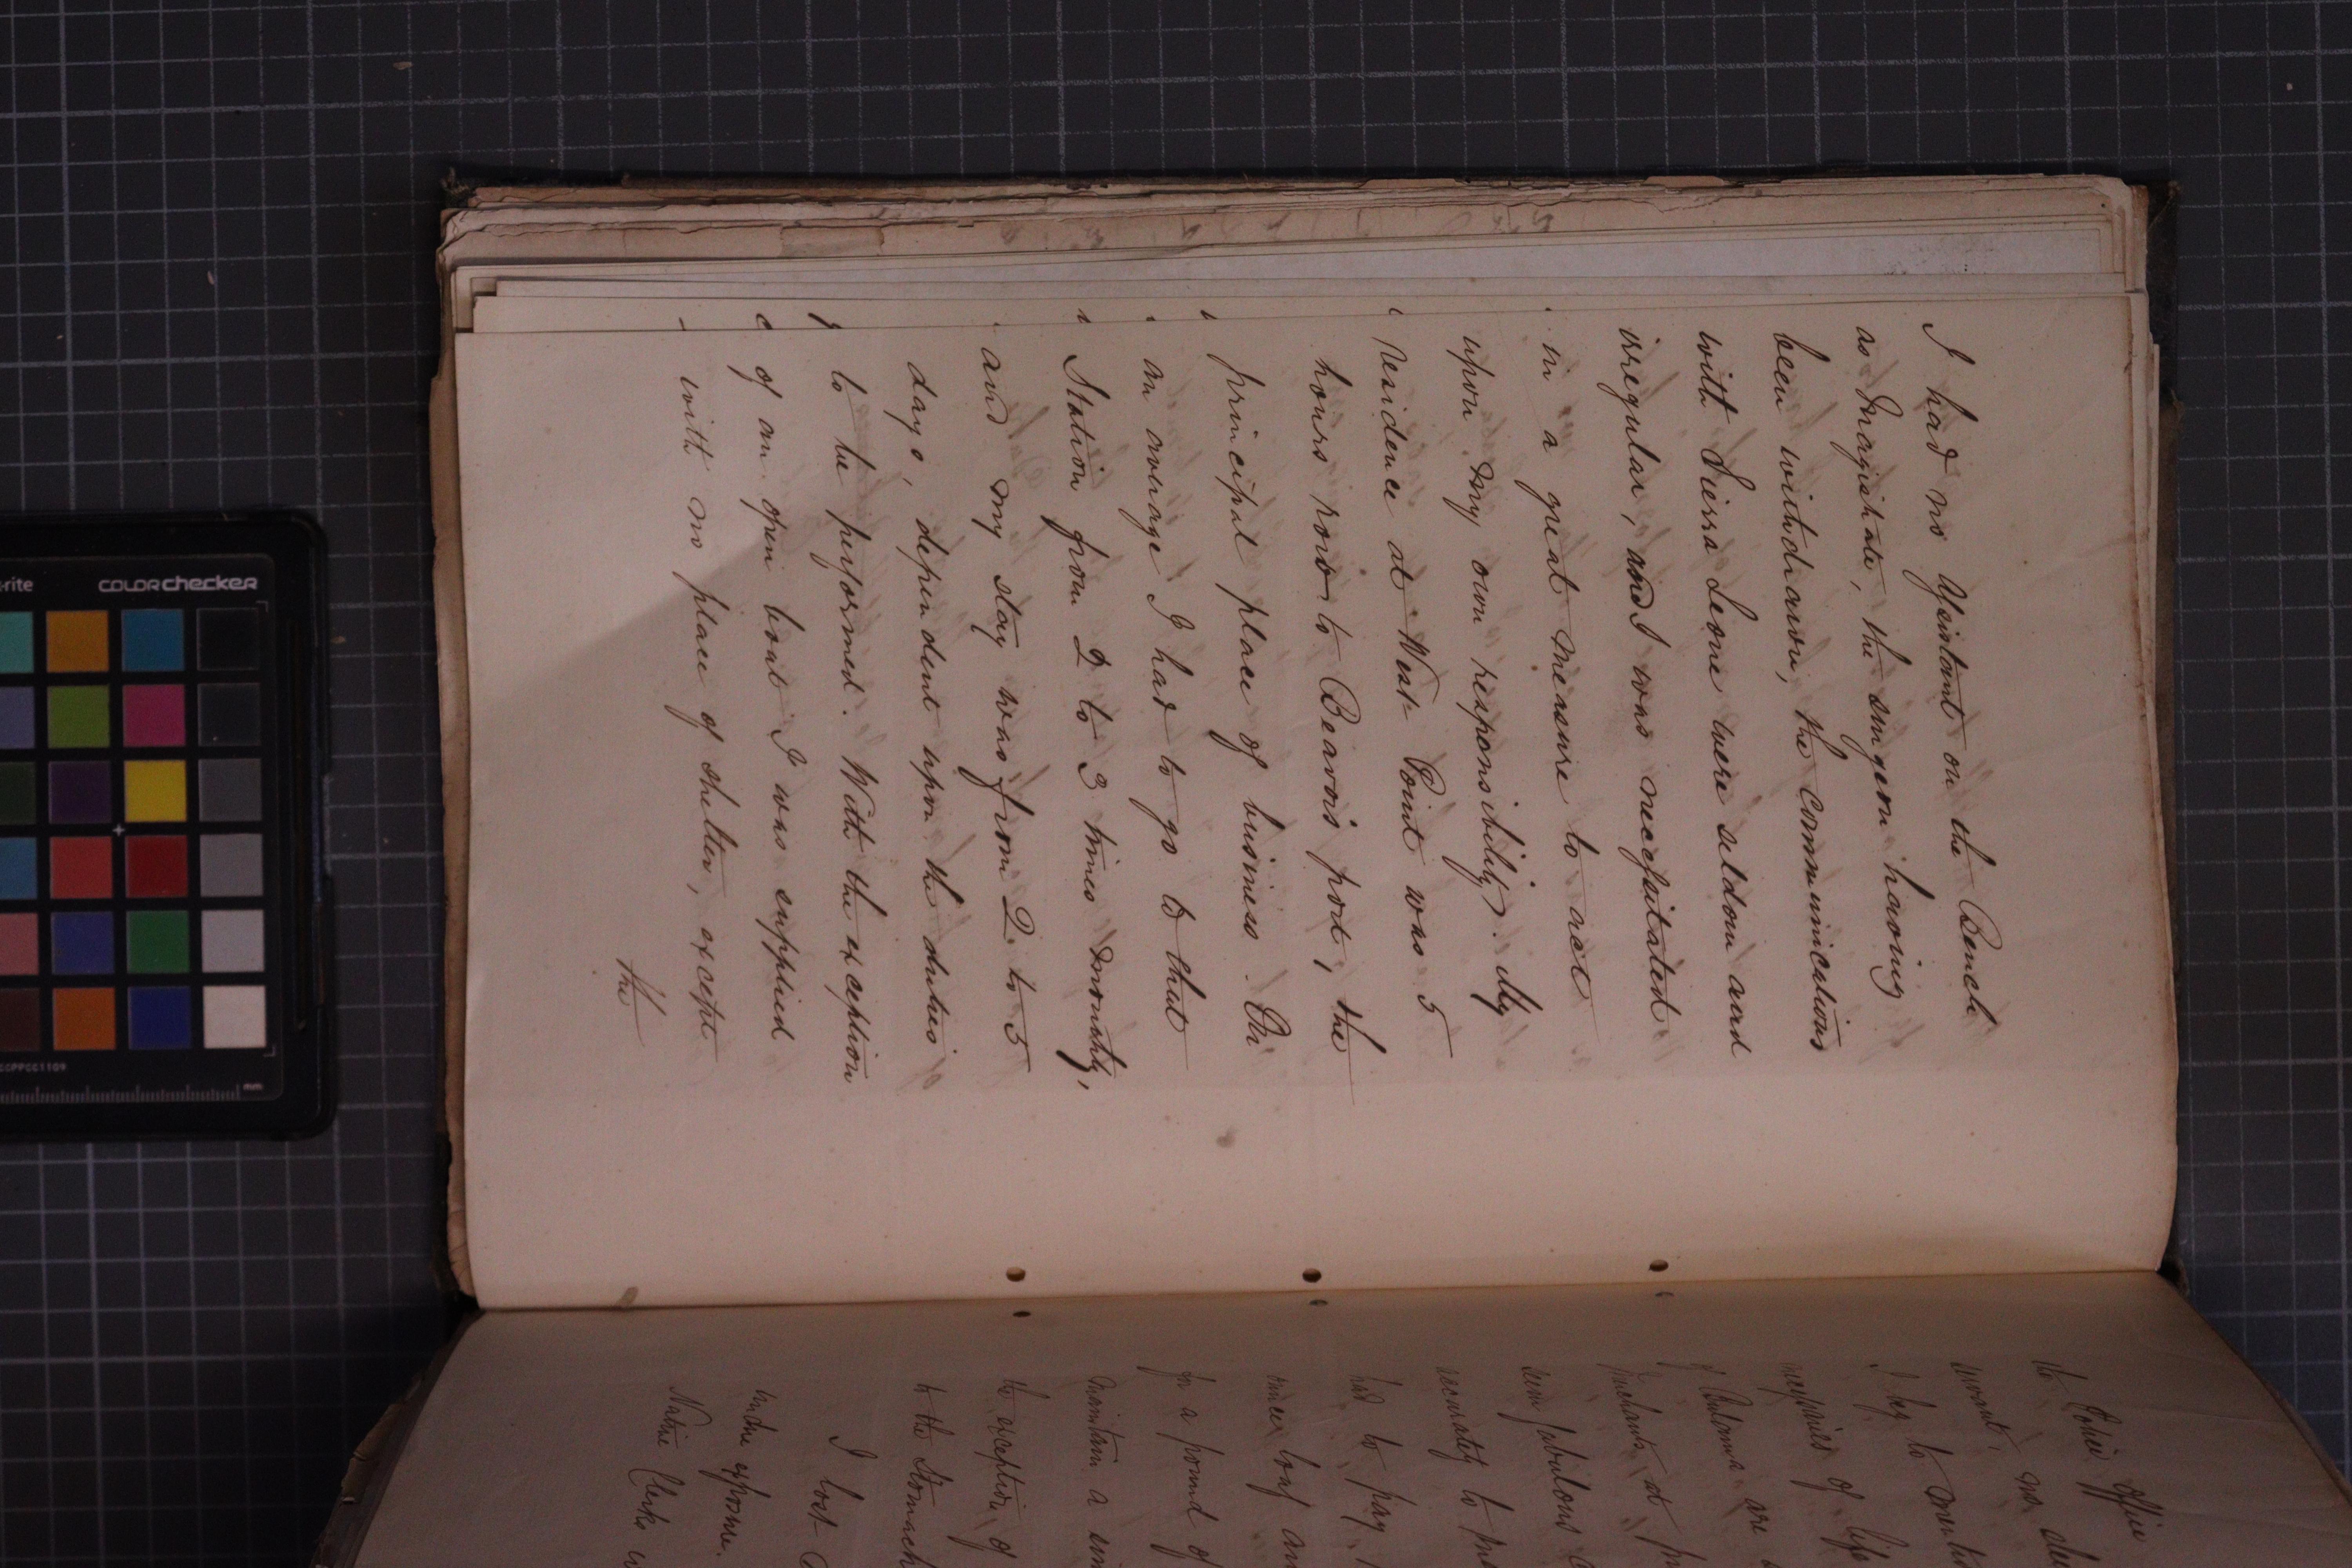 I had no Assistant on the Bench
as Magistrate, the surgeon having
been withdrawn, the communications
with Sierra Leone were seldom and
irregular, and I was necessitated
in a great measure to act
upon my own responsibility. My
residence at West Point was 5
hours row to Beavois port, the
principal place of business. On
an average I had to go to that
Station from 2 to 3 times monthly,
and my stay was from 2 to 5
days, dependent upon the duties
to be performed. With the exception
of an open boat I was supplied
with no place of shelter, except
the
the Police Office
I beg to
necessaries of life
of Bulama are
merchants at
seem fabulous
accurately to
had to pay
loaf
for a pound of
maintain a
the exception of
to the Stomach
I lost
undue exposure.
Native Clerks
-rite
COLORchecker
CCPPCC1109
mm